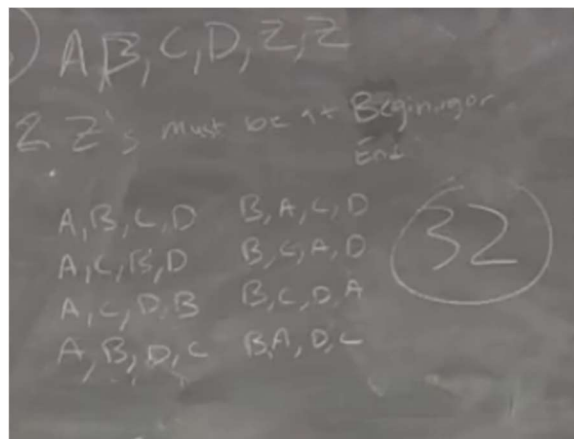 ) A, B, C, D, Z, Z
2 Z's must be at Begining or
End
A, B, C, D
A, C, B, D
A, C, D, B
A, B, D, C
B, A, C, D
B, C, A, D
B, C, D, A
B, A, D, C
32